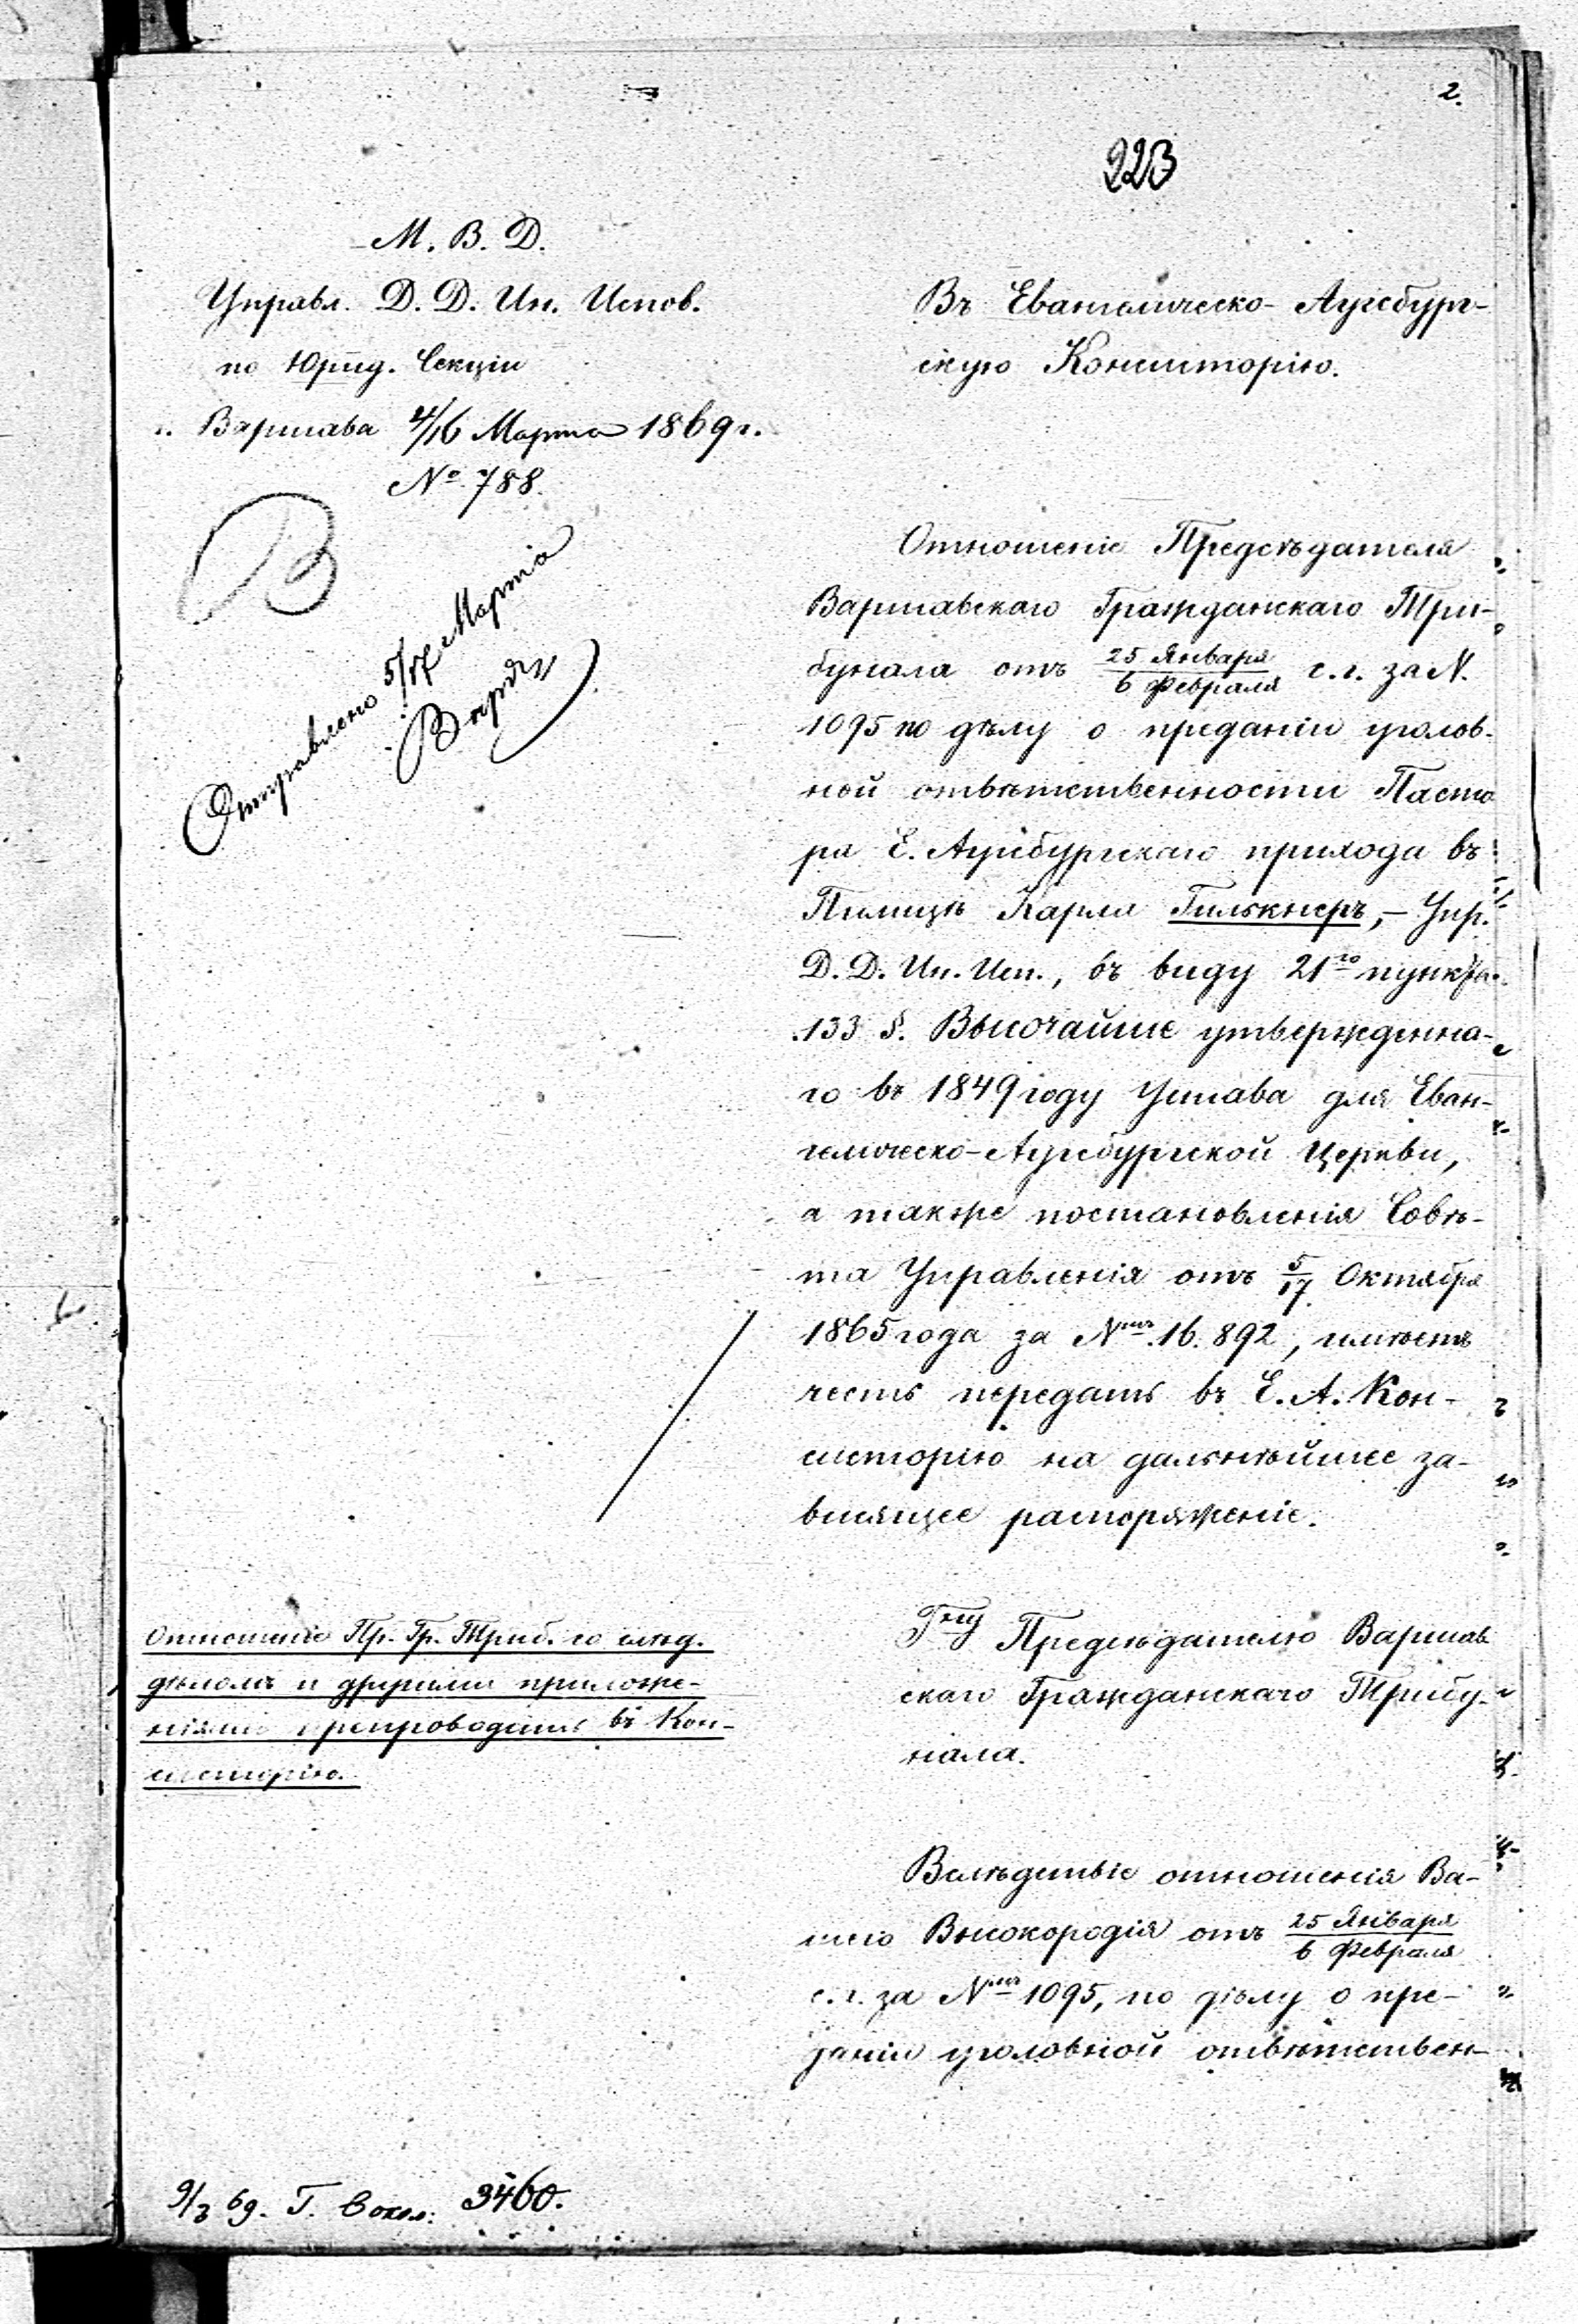 2.
223
М. В. Д.
Управл. Д. Д. Ин. Испов.
по Юрид. Секціи
Варшава 4/16 Марта 1869 г.
№ 788.
В
Отправлено 5/17 Марта
Въ Евангелическо-Аугсбург-
скую Консисторію.
Отношеніе Предсѣдателя
Варшавскаго Гражданскаго Три-
бунала отъ 25 Января / 6 Февраля с. г. за N.
1095 по дѣлу о преданіи уголов-
ной отвѣтственности Пасто
ра Е. Аугсбургскаго прихода въ
Пилицѣ Карла Гилькнеръ, – Упр.
Д. Д. Ин. Исп., въ виду 21го пункта
133 §. Высочайше утвержденна-
го въ 1849 году Устава для Еван-
гелическо-Аугсбургской Церкви,
а также постановленія Совѣ-
та Управленія отъ 5/17 Октября
1865 года за Nмъ. 16.892, имѣетъ
честь передать въ Е. А. Кон-
систорію на дальнѣйшее за-
висящее распоряженіе.
Отношеніе Пр. Гр. Триб. со слѣд.
дѣломъ и другими приложе-
ніями препроводить въ Кон-
систорію.
Гну Предсѣдателю Варшав
скаго Гражданскаго Трибу-
нала.
Вслѣдствіе отношенія Ва-
шего Высокородія отъ 25 Января / 6 Февраля
с. г. за Nмъ 1095, по дѣлу о пре-
даніи уголовной отвѣтствен-
9/3 69. Г. 3460.